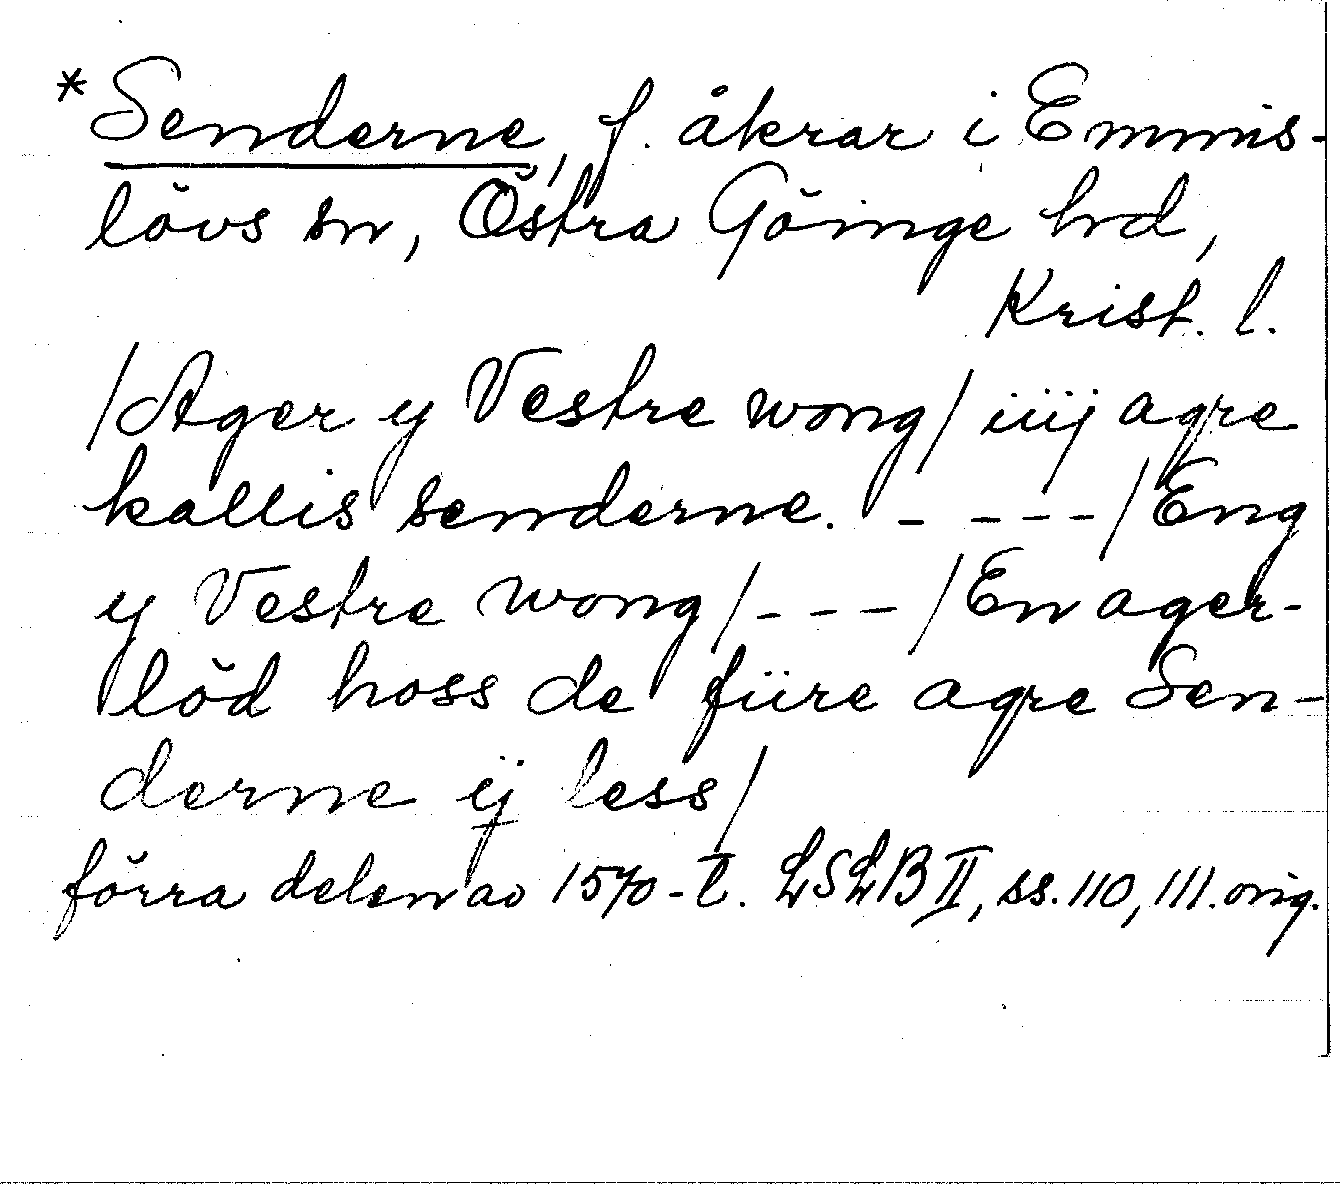 *Senderne, f. åkrar i Emmis-
lövs sn, Östra Göinge hd,
Krist. l.
/Ager y Vestre wong/ iiij agre
kallis senderne. - - - - /Eng
y Vestre wong/ - - - /En ager-
löd hoss de fiire agre Sen-
derne ij less/
förra delen av 1570-t. LSLB II, ss. 110, 111. orig.